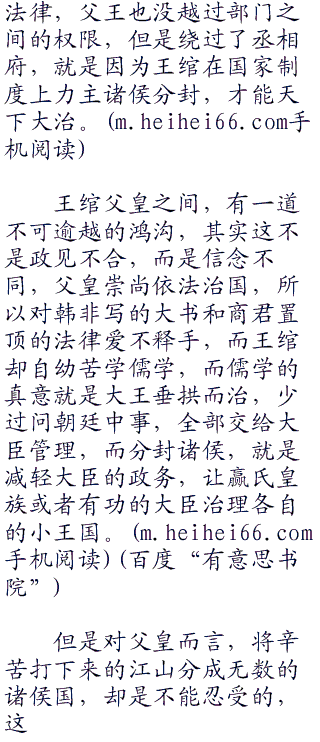 法律，父王也没越过部门之
间的权限，但是绕过了丞相
府，就是因为王绾在国家制
度上力主诸侯分封，才能天
下大治。(m.heihei66.com手
机阅读)
王绾父皇之间，有一道
不可逾越的鸿沟，其实这不
是政见不合，而是信念不
同，父皇崇尚依法治国，所
以对韩非写的大书和商君置
顶的法律爱不释手，而王绾
却自幼苦学儒学，而儒学的
真意就是大王垂拱而治，少
过问朝廷中事，全部交给大
臣管理，而分封诸侯，就是
减轻大臣的政务，让赢氏皇
族或者有功的大臣治理各自
的小王国。(m.heihei66.com
手机阅读)(百度“有意思书
院”)
但是对父皇而言，将辛
苦打下来的江山分成无数的
诸侯国，却是不能忍受的，
这